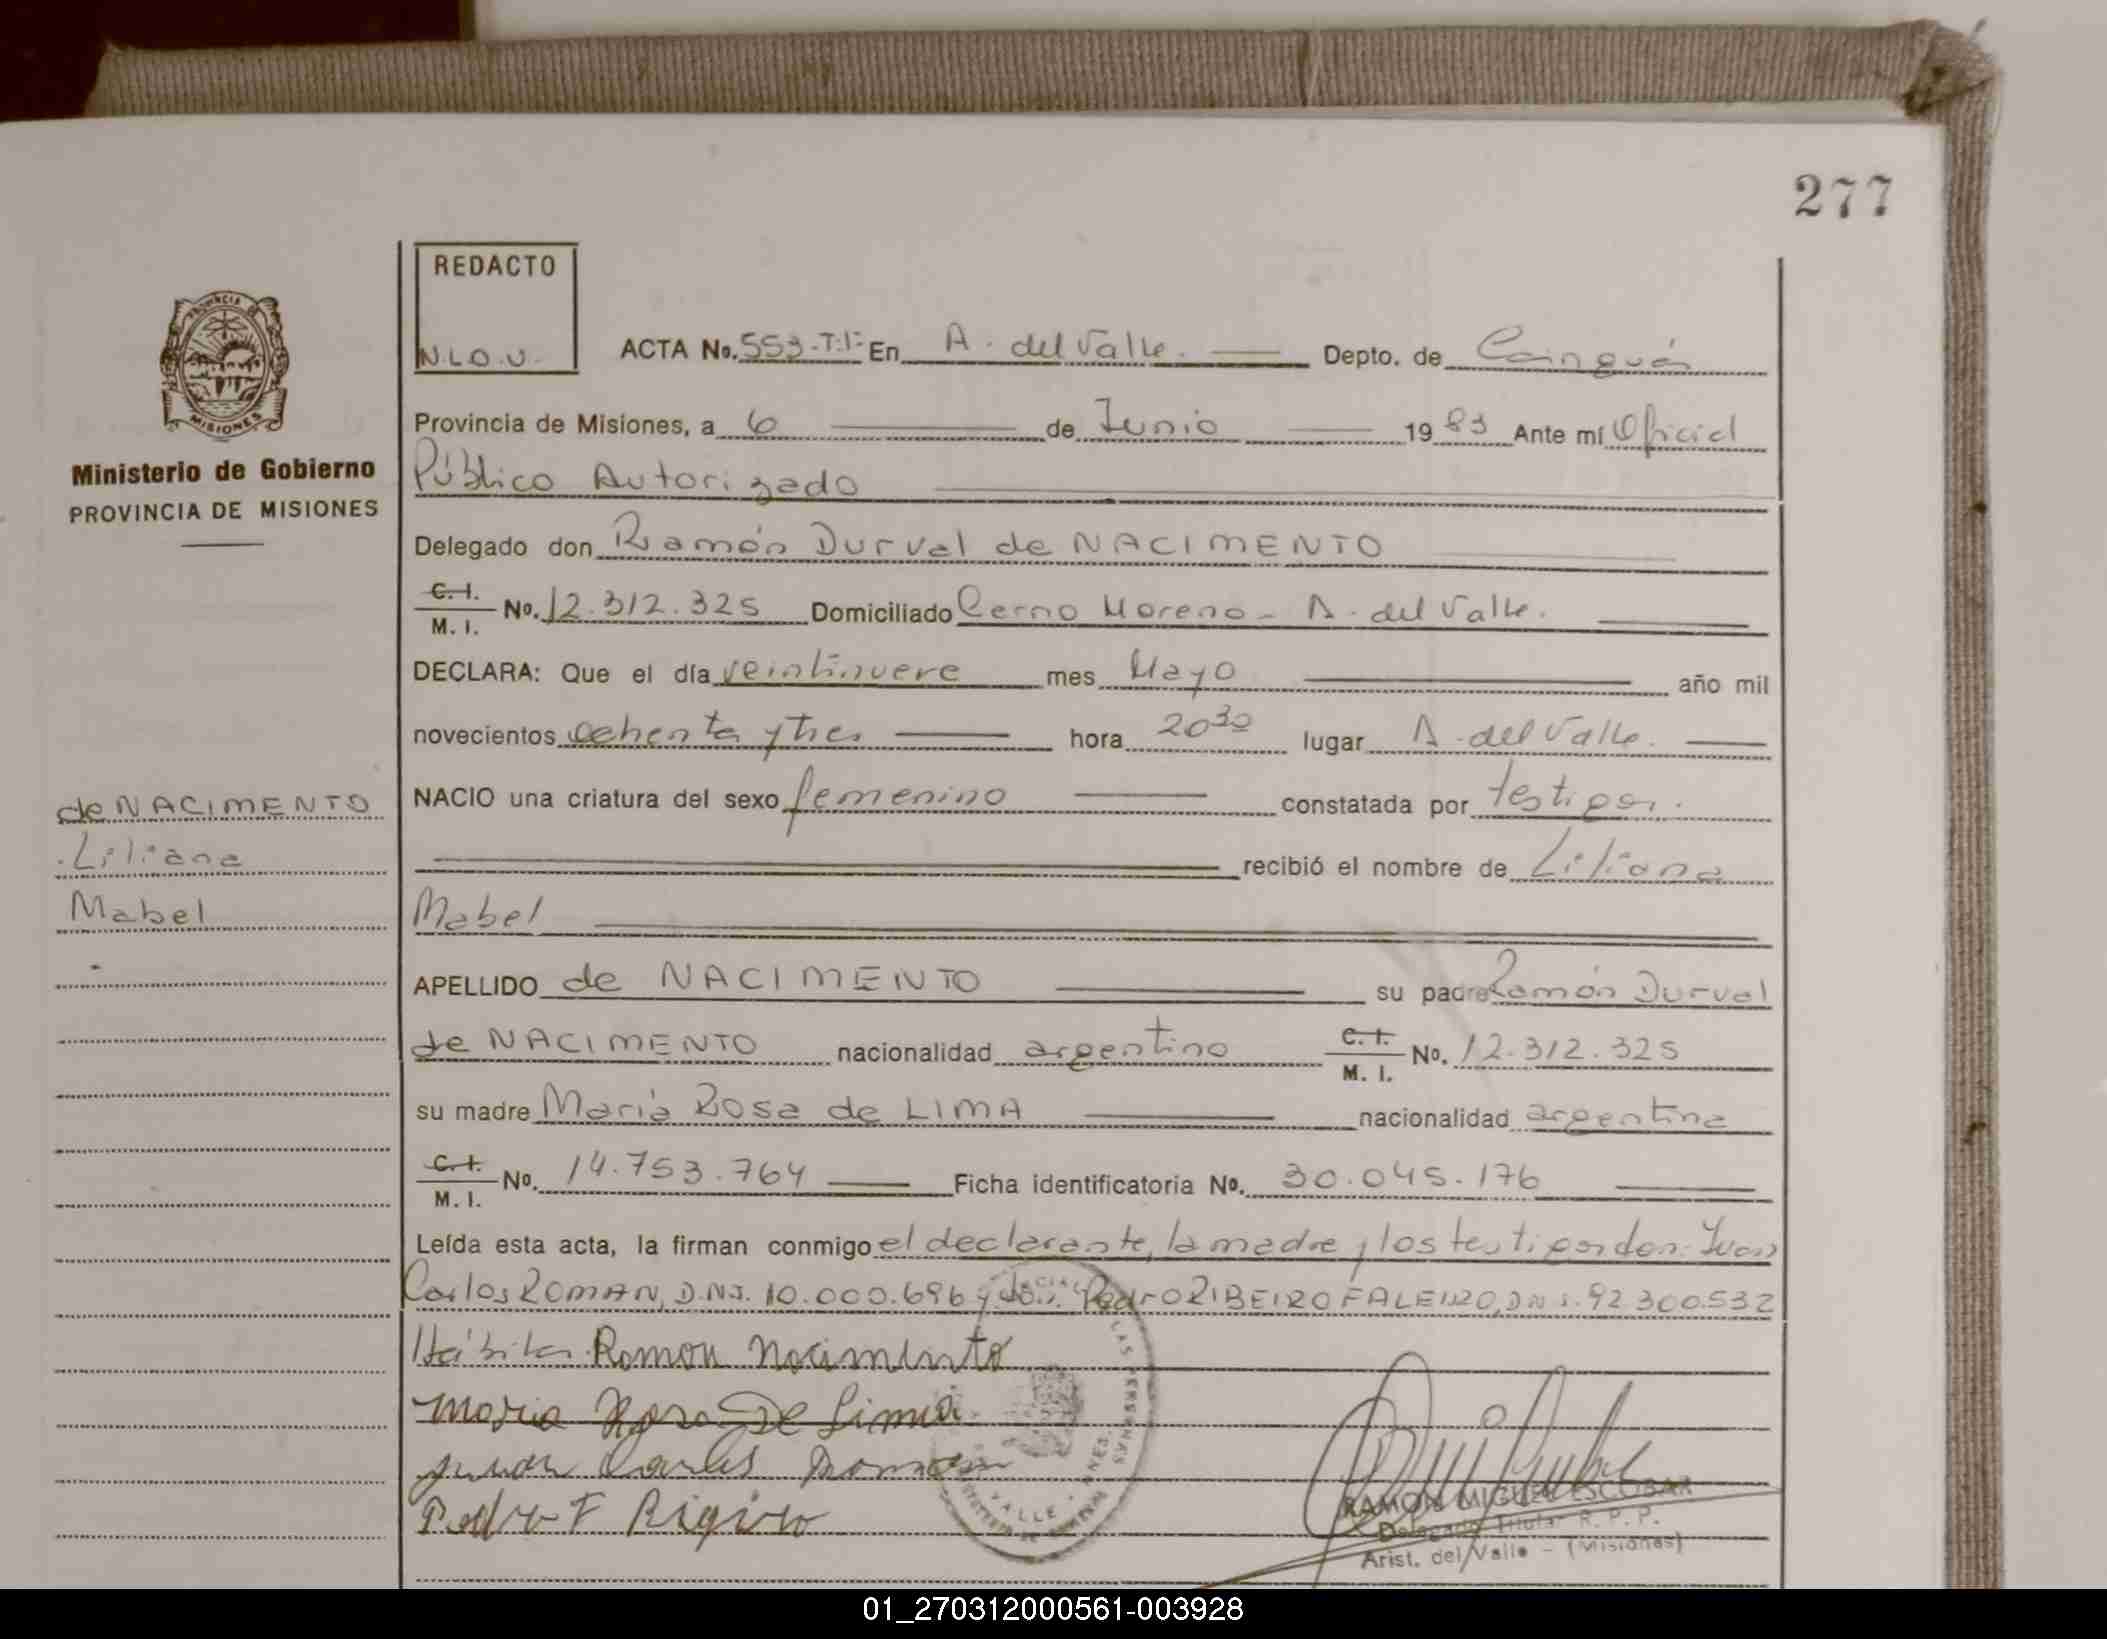 277
REDACTO
N.L.O.V.
ACTA No. 553-T:I- En A. del Valle. Depto. de Cainguás
Provincia de Misiones, a 6 de Junio 1983 Ante mí Oficial
Público Autorizado
Ministerio de Gobierno
PROVINCIA DE MISIONES
Delegado don Ramón Durval de NACIMENTO
C. I.
M. I.
No. 12.312.325 Domiciliado Cerro Moreno - A. del Valle.
DECLARA: Que el día veintinueve mes Mayo año mil
novecientos ochenta y tres hora 20 30 lugar A. del Valle.
NACIO una criatura del sexo femenino constatada por testigos.
recibió el nombre de Liliana
Mabel
de NACIMENTO
Liliana
Mabel
APELLIDO de NACIMENTO su padre Ramón Durval
de NACIMENTO nacionalidad argentino C. I. M. I. No. 12.312.325
su madre María Rosa de LIMA nacionalidad argentina
C. I.
M. I.
No. 14.753.764 Ficha identificatoria No. 30.045.176
Leída esta acta, la firman conmigo el declarante, la madre y los testigos don: Juan
Carlos ROMAN, D.N.I. 10.000.696 y don Pedro RIBEIRO FALEIRO, D.N.I. 92.300.532
Hábiles. Ramon Nacimento
Maria Rosa De Lima
Juan Carlos Roman
Pedro F
RAMON MIGUEL ESCOBAR
Delegado Titular R. P. P.
Arist. del Valle - (Misiones)
01_270312000561-003928